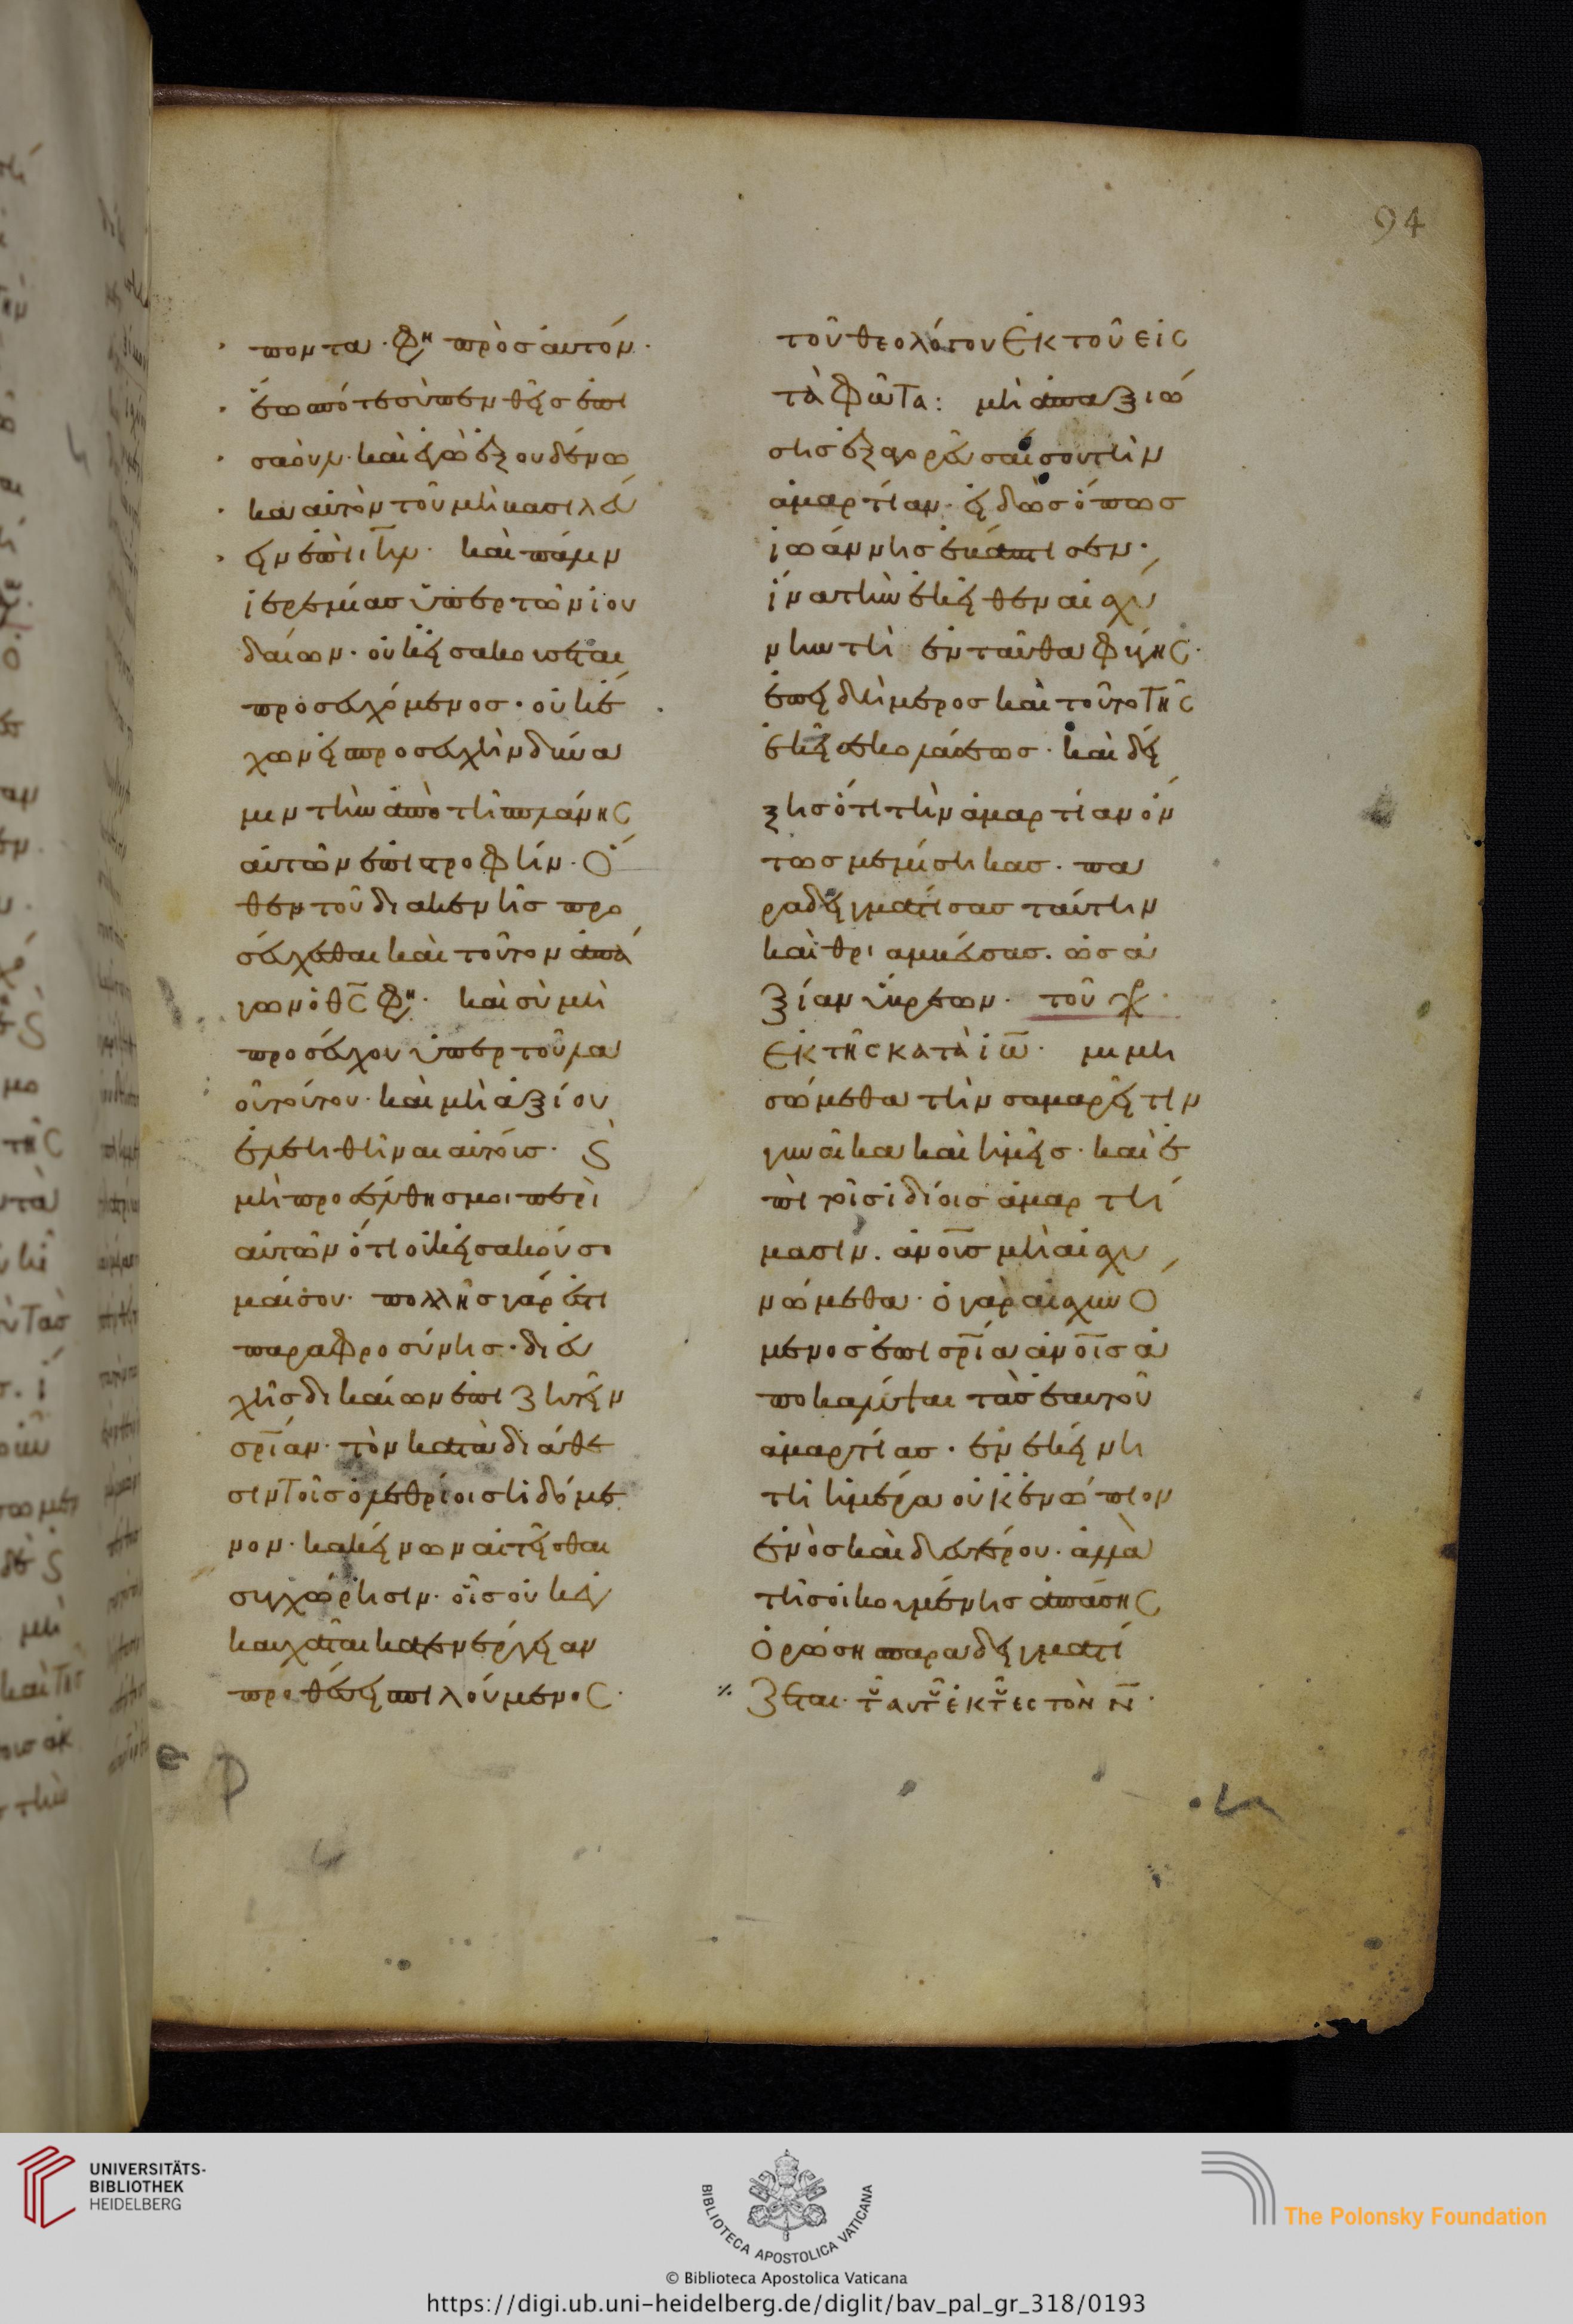 ποντα· φη πρὸς αὐτόν·
ἕως πότε σὺ πενθεῖς ἐπὶ
σαούλ· καὶ ἐγὼ ἐξουδένω
κα αὐτὸν τοῦ μὴ βασιλεύ
ειν ἐπὶ ιηλ· καὶ πάλιν
ἱερεμίας ὑπὲρ τῶν ἰου
δαίων· οὐκ εἰσακούεται
προσευχόμενος· οὐκ ἔ
χων εἰς προσευχὴν δύνα
μιν τὴν ἀπὸ τῆ πλάνης
αὐτῶν ἐπιστροφήν· Ὅ
θεν τοῦ διακενῆς προ
σεύχεσθαι καὶ τοῦτον ἀπά
γων ὁ θς φη· καὶ σὺ μὴ
προσεύχου ὑπὲρ τοῦ λα
οῦ τούτου· καὶ μὴ ἀξίου
ἐλεηθῆναι αὐτούς· ϗ
μὴ προσέλθης μοι περὶ
αὐτῶν ὅτι οὐκ εἰσακούσο
μαί σου· πολλῆς γάρ ἐστι
παραφροσύνης· δι εὐ
χῆς δικαίων ἐπιζητεῖν
σρίαν· τὸν κατὰ διάθε
σιν τοῖς ὀλεθρίοις ἡδόμε
νον· κἀκείνων αἰτεῖσθαι
συγχώρησιν· οἷς οὐκ εὖ
καυχᾶται κατ ἐνέργειαν
προθέσει σπιλούμενος·
94
τοῦ θεολόγου Ἐκ τοῦ εἰς
τὰ Φῶτα: μὴ ἀπαξιώ
σης ἐξαγορεῦσαί σου τὴν
ἁμαρτίαν· εἰδὼς ὅπως
ἰωάννης ἐβάπτισεν·
ἵνα τὴν ἐκεῖθεν αἰσχύ
νην τῆ ἐνταῦθα φύγης·
ἐπειδὴ μέρος καὶ τοῦτο τῆς
ἐκεῖσε κολάσεως· καὶ δεί
ξης ὅτι τὴν ἁμαρτίαν ὄν
τως μεμίσηκας· πα
ραδειγματίσας ταύτην
καὶ θριαμβεύσας· ὡς ἀ
ξίαν ὕβρεων· τοῦ χρ
ἐκ τῆς κατὰ ἰω· μιμη
σώμεθα τὴν σαμαρεῖτιν
γυναῖκα καὶ ἡμεῖς· καὶ ἐ
πὶ τοῖς ἰδίοις ἁμαρτή
μασιν· ἀνους μὴ αἰσχυ
νώμεθα· ὁ γὰρ αἰσχυνό
μενος ἐπὶ σρία ἀνοις ἀ
ποκαλύψαι τὰς ἑαυτοῦ
ἁμαρτίας· ἐν ἐκείνη
τῆ ἡμέρα οὐκ ἐνώπιον
ἑνὸς καὶ δευτέρου· ἀλλὰ
τῆς οἰκουμένης ἁπάσης
ὁρώσης παραδειγματί
ζεται· τοῦ αυτοῦ ἐκ τοῦ ες τὸν Ν·
UNIVERSITÄTS-
BIBLIOTHEK
HEIDELBERG
BIBLIOTECA APOSTOLICA VATICANA
The Polonsky Foundation
© Biblioteca Apostolica Vaticana
https://digi.ub.uni-heidelberg.de/diglit/bav_pal_gr_318/0193